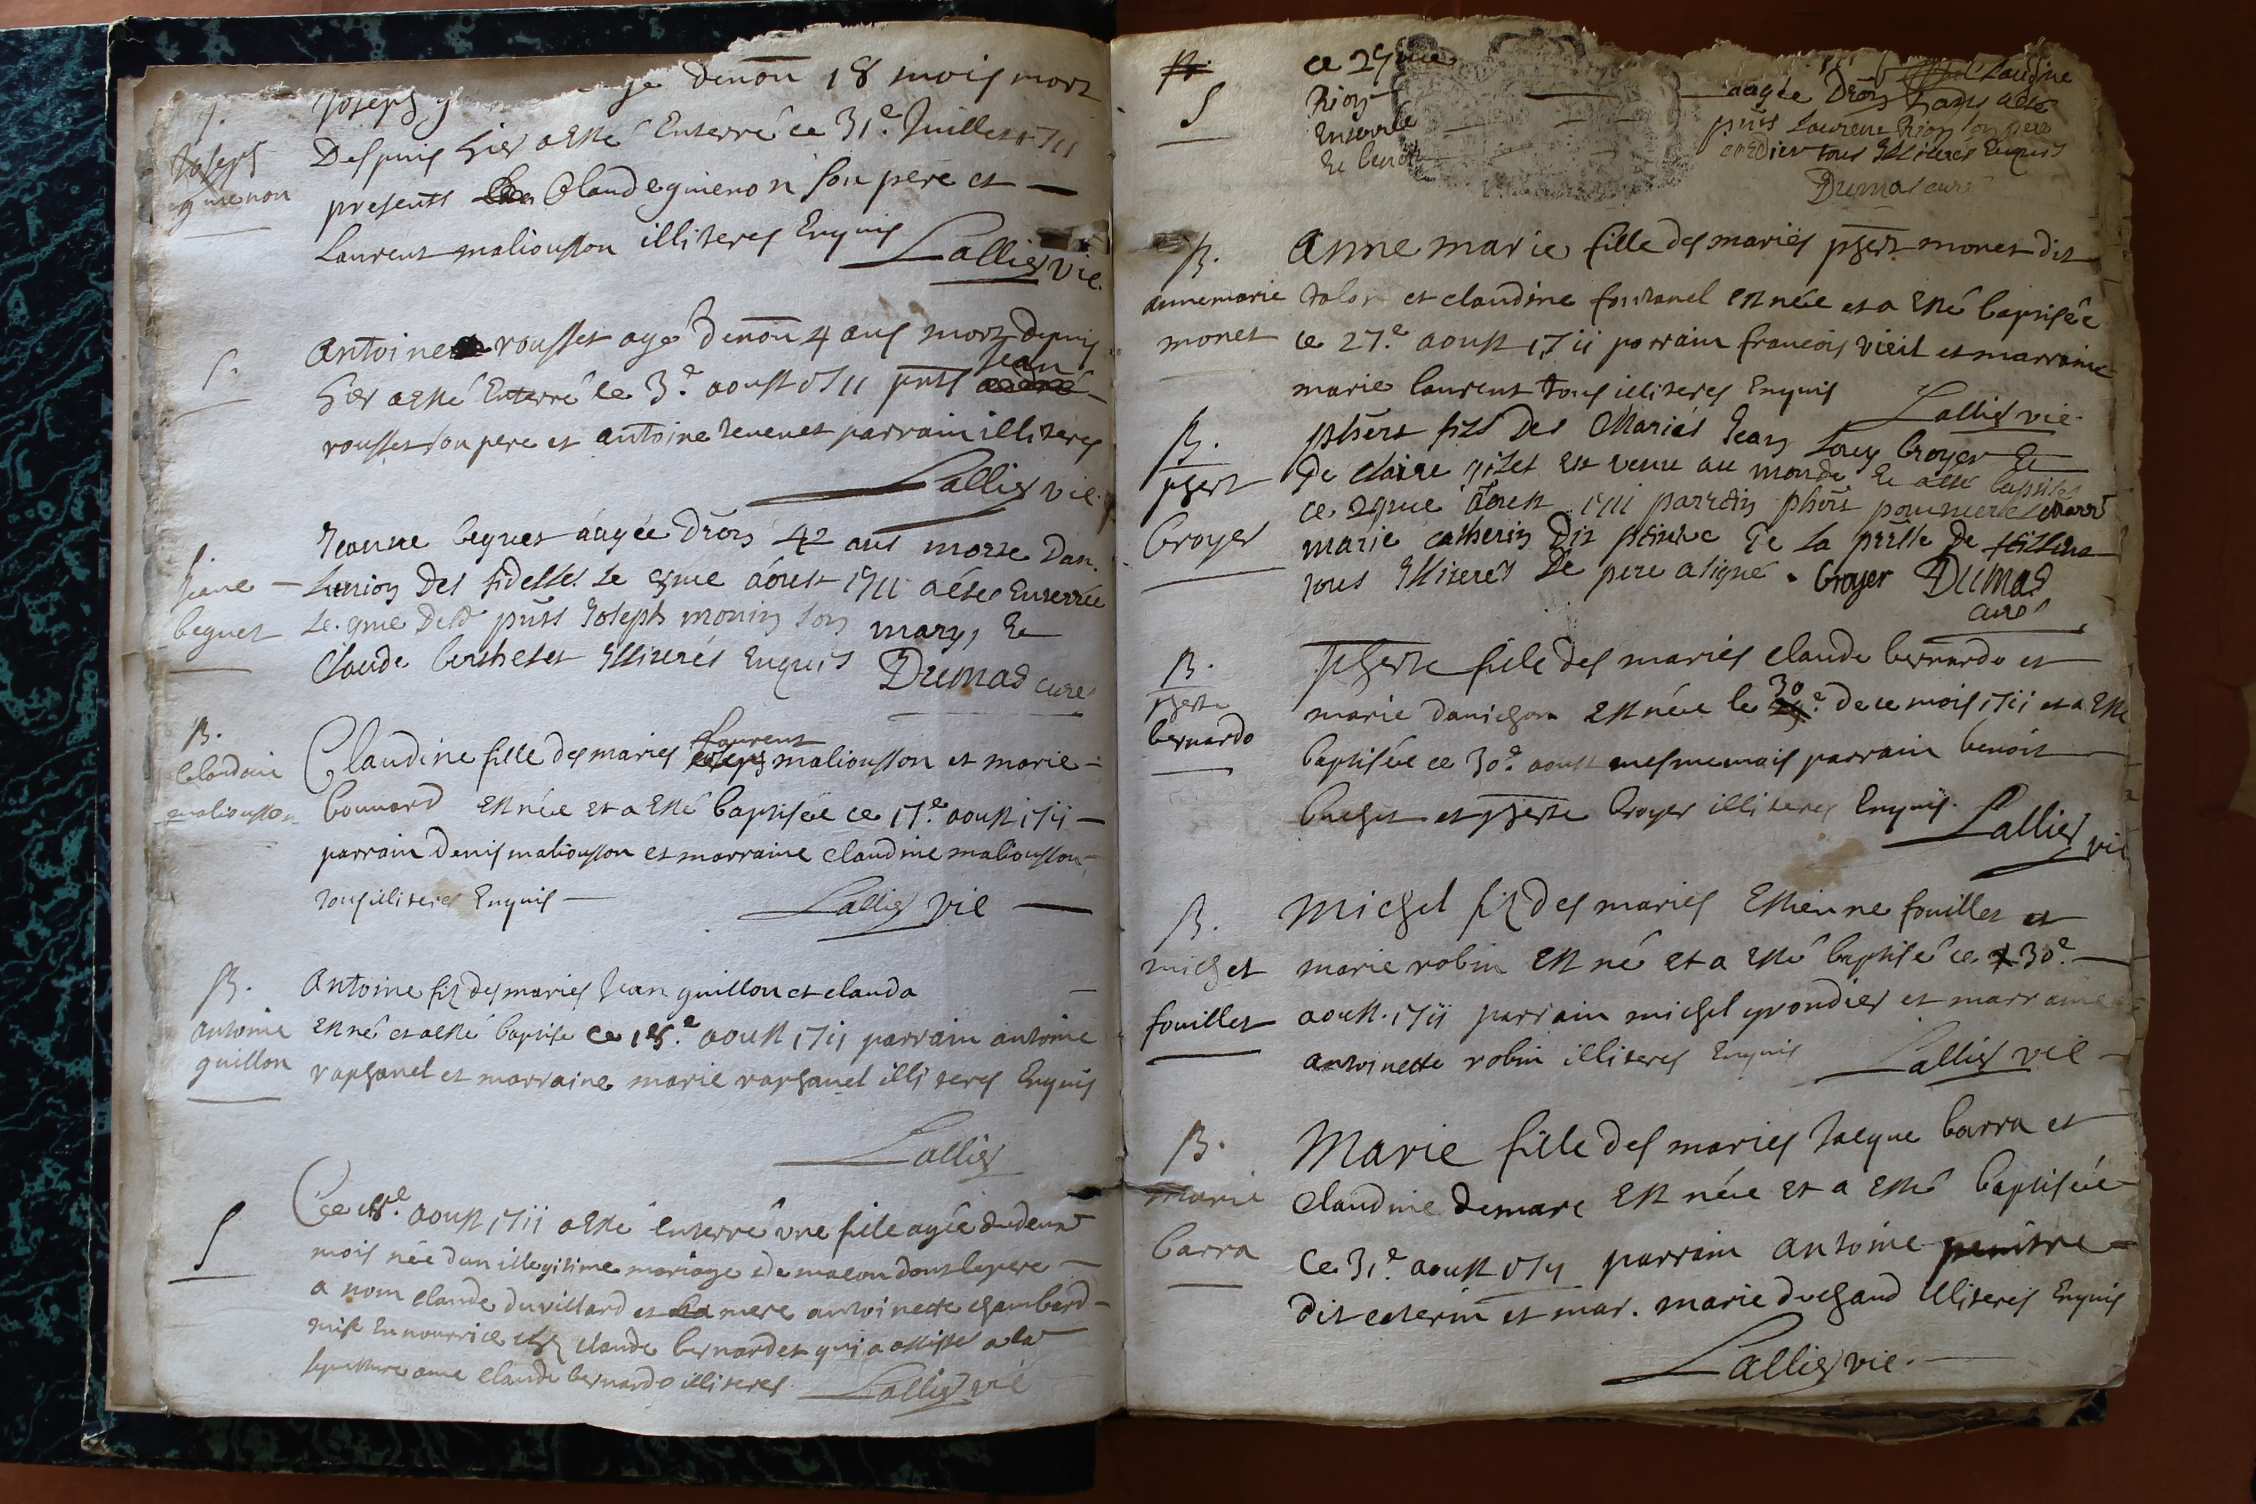 S.
Joseph
guienon
Joseph g agé denōn 18 mois mort
Despuis hier a esté Enterré ce 31e. Juillet 1711
presents Claude guienon son père et
Laurent maliousson illiteres Enquis
Lallier vic.
S.
Antoine rousset agé denōn 4 ans mort depuis
hier a esté Enterré ce 3e. aoust 1711 pnts Jean
rousset son pere et antoine tevenet parrain illiteres
Lallier vic.
S.
Jeane
beguet
Jeanne beguet áagée D'rōn 42 ans morte Dan.
Lunion Des fidelles Le 8me áoust 1711 a esté Enterrée
Le 9me Dud pñts Joseph monin son mary, Et
Claude berthelet Illiterés Enquis Dumas curé
B.
Claudine
maliousson
Claudine fille des mariés Laurent maliousson et marie
bonnard Est née et a Esté baptisée ce 17e. aoust 1711
parrain Denis maliousson et marraine claudine maliousson
tous illiteres Enquis
Lallier vic
B.
antoine
guillon
Antoine fils des mariés Jean guillon et clauda
Est né et a esté baptisé ce 18e. aoust 1711 parrain antoine
raphanel et marraine marie raphanel illiteres Enquis
Lallier
S
Ce 18e. aoust 1711 a Esté enterré une fille agée de deux
mois née d'un illegitime mariage de macon dont le pere
a nom claude duvillard et la mere antoinette chambard
mise En nourrice chez claude bernardet qui a assisté a la
sepulture avec claude bernardo illiteres
Lallier vic
S
ce 25me Claudine
Rion áagée D'rōn
Ensevelie pñts Laurent Rion son pere
Et benoit tous Illiterés Enquis
Dumas curé
B.
anne marie
monet
Anne marie fille des mariés phert monet dit
talon et claudine fontanel est née et a Esté baptisée
ce 27e. aoust 1711 parrain francois vieil et marraine
marie laurent tous illiteres Enquis
Lallier vic.
B.
phert
broyer
phbert fils Des Mariés Jean Louy broyer Et
De claire gilet Est venu au monde Et a esté baptisé
ce 29me áoust 1711 parrain phbert pommier Marr
marie catherin Dit peintre De la pñsse De
tous Illiterés Le pere a signé. broyer Dumas
curé
B.
pherte
bernardo
Pherte fille des mariés claude bernardo et
marie danichon Est née le 30e. de ce mois 1711 et a Esté
baptisée ce 30e. aoust mesme mois parrain benoit
buchet et pherte broyer illiteres Enquis.
Lallier vic
B.
michel
fouillet
Michel fils des mariés Estienne fouillet et
marie robin Est né et a Esté baptisé ce 30e.
aoust. 1711 parrain michel grondier et marraine
antoinette robin illiteres Enquis Lallier vic
B.
Marie
barra
Marie fille des mariés Jacque barra et
claudine demarc Est née et a Esté baptisée
Ce 31e. aoust 1711 parrain antoine peintre
dit caterin et mar. marie duchaud illiteres Enquis
Lallier vic.